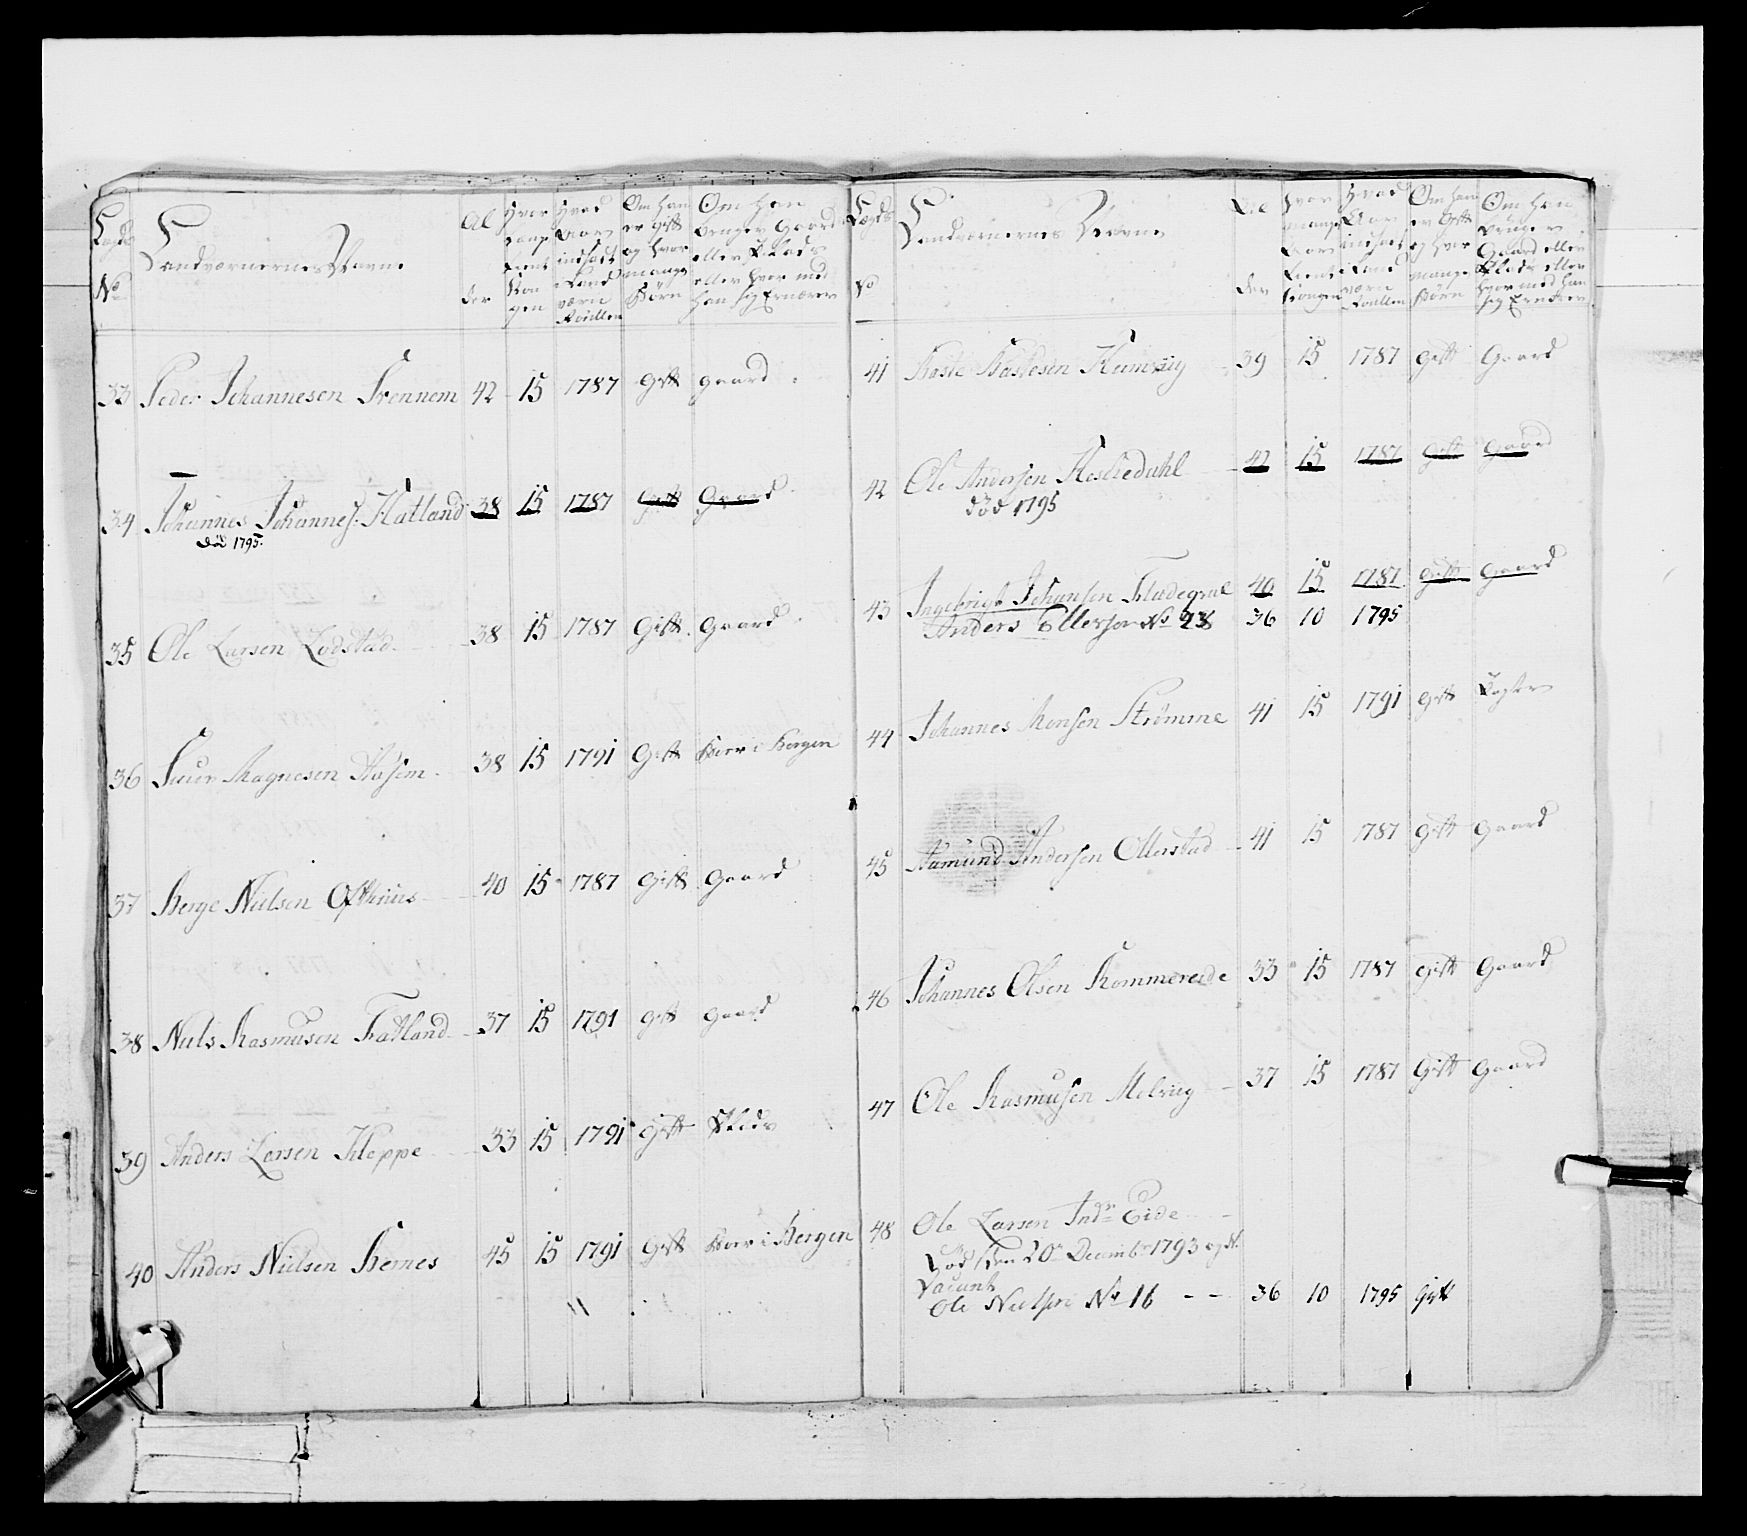 Lægds No
Landværnernes Navne
Al der
Hvor lange tient Kon gen
Hvad Aar indsatt i Land værn Roullen
Om han er gift og hvor mange Börn
Om han bruger Gaard eller Plads eller hvor med han sig Ernærer
33 Peder Johannesen Trennem 42 15 1787 Gift gaard
34 Johannes Johannes. Hatland 38 15 1787 Gift Gaard
död 1795.
35 Ole Larsen Lodstad 38 15 1787 Gift Gaard
36 Siur Magnesen 38 15 1791 Gift Boer i Bergen
37 Berge Nielsen Ofthuus 40 15 1787 Gift Gaard
38 Niels Rasmusen Fatland 37 15 1791 gift gaard
39 Anders Larsen Kleppe 33 15 1791 gift Plads
40 Anders Nielsen Bernes 45 15 1791 Gift Boer i Bergen
Lægds No
Landværnernes Navne
Al der
Hvor mange Aar tient kongen
Hvad Aar indsat i Land værn Roullen
Om han er Gift og hvor mange Börn
Om han bruger Gaard eller Plads eller hvor med han sig Ernærer
41 Baste Bastesen 39 15 1787 Gift Gaard
42 Ole Andersen Hesliedahl 42 15 1787 Gift Gaard
död 1795
43 Ingebrigt Johansen 40 15 1787 Gift Gaard
Anders Ellersen No 36 10 1795
44 Johannes Monsen Strömme 41 15 1791 Gift
45 Aamund Andersen Ollerstad 41 15 1787 Gift Gaard
46 Johannes Olsen Rommereide 33 15 1787 gift Gaard
47 Ole Rasmusen 37 15 1787 Gift Gaard
48 Ole Larsen Indr Eide
Död den 20de Decemb 1793 og
Vacant
Ole Nielsen No 16 - - 36 10 1795 Gift